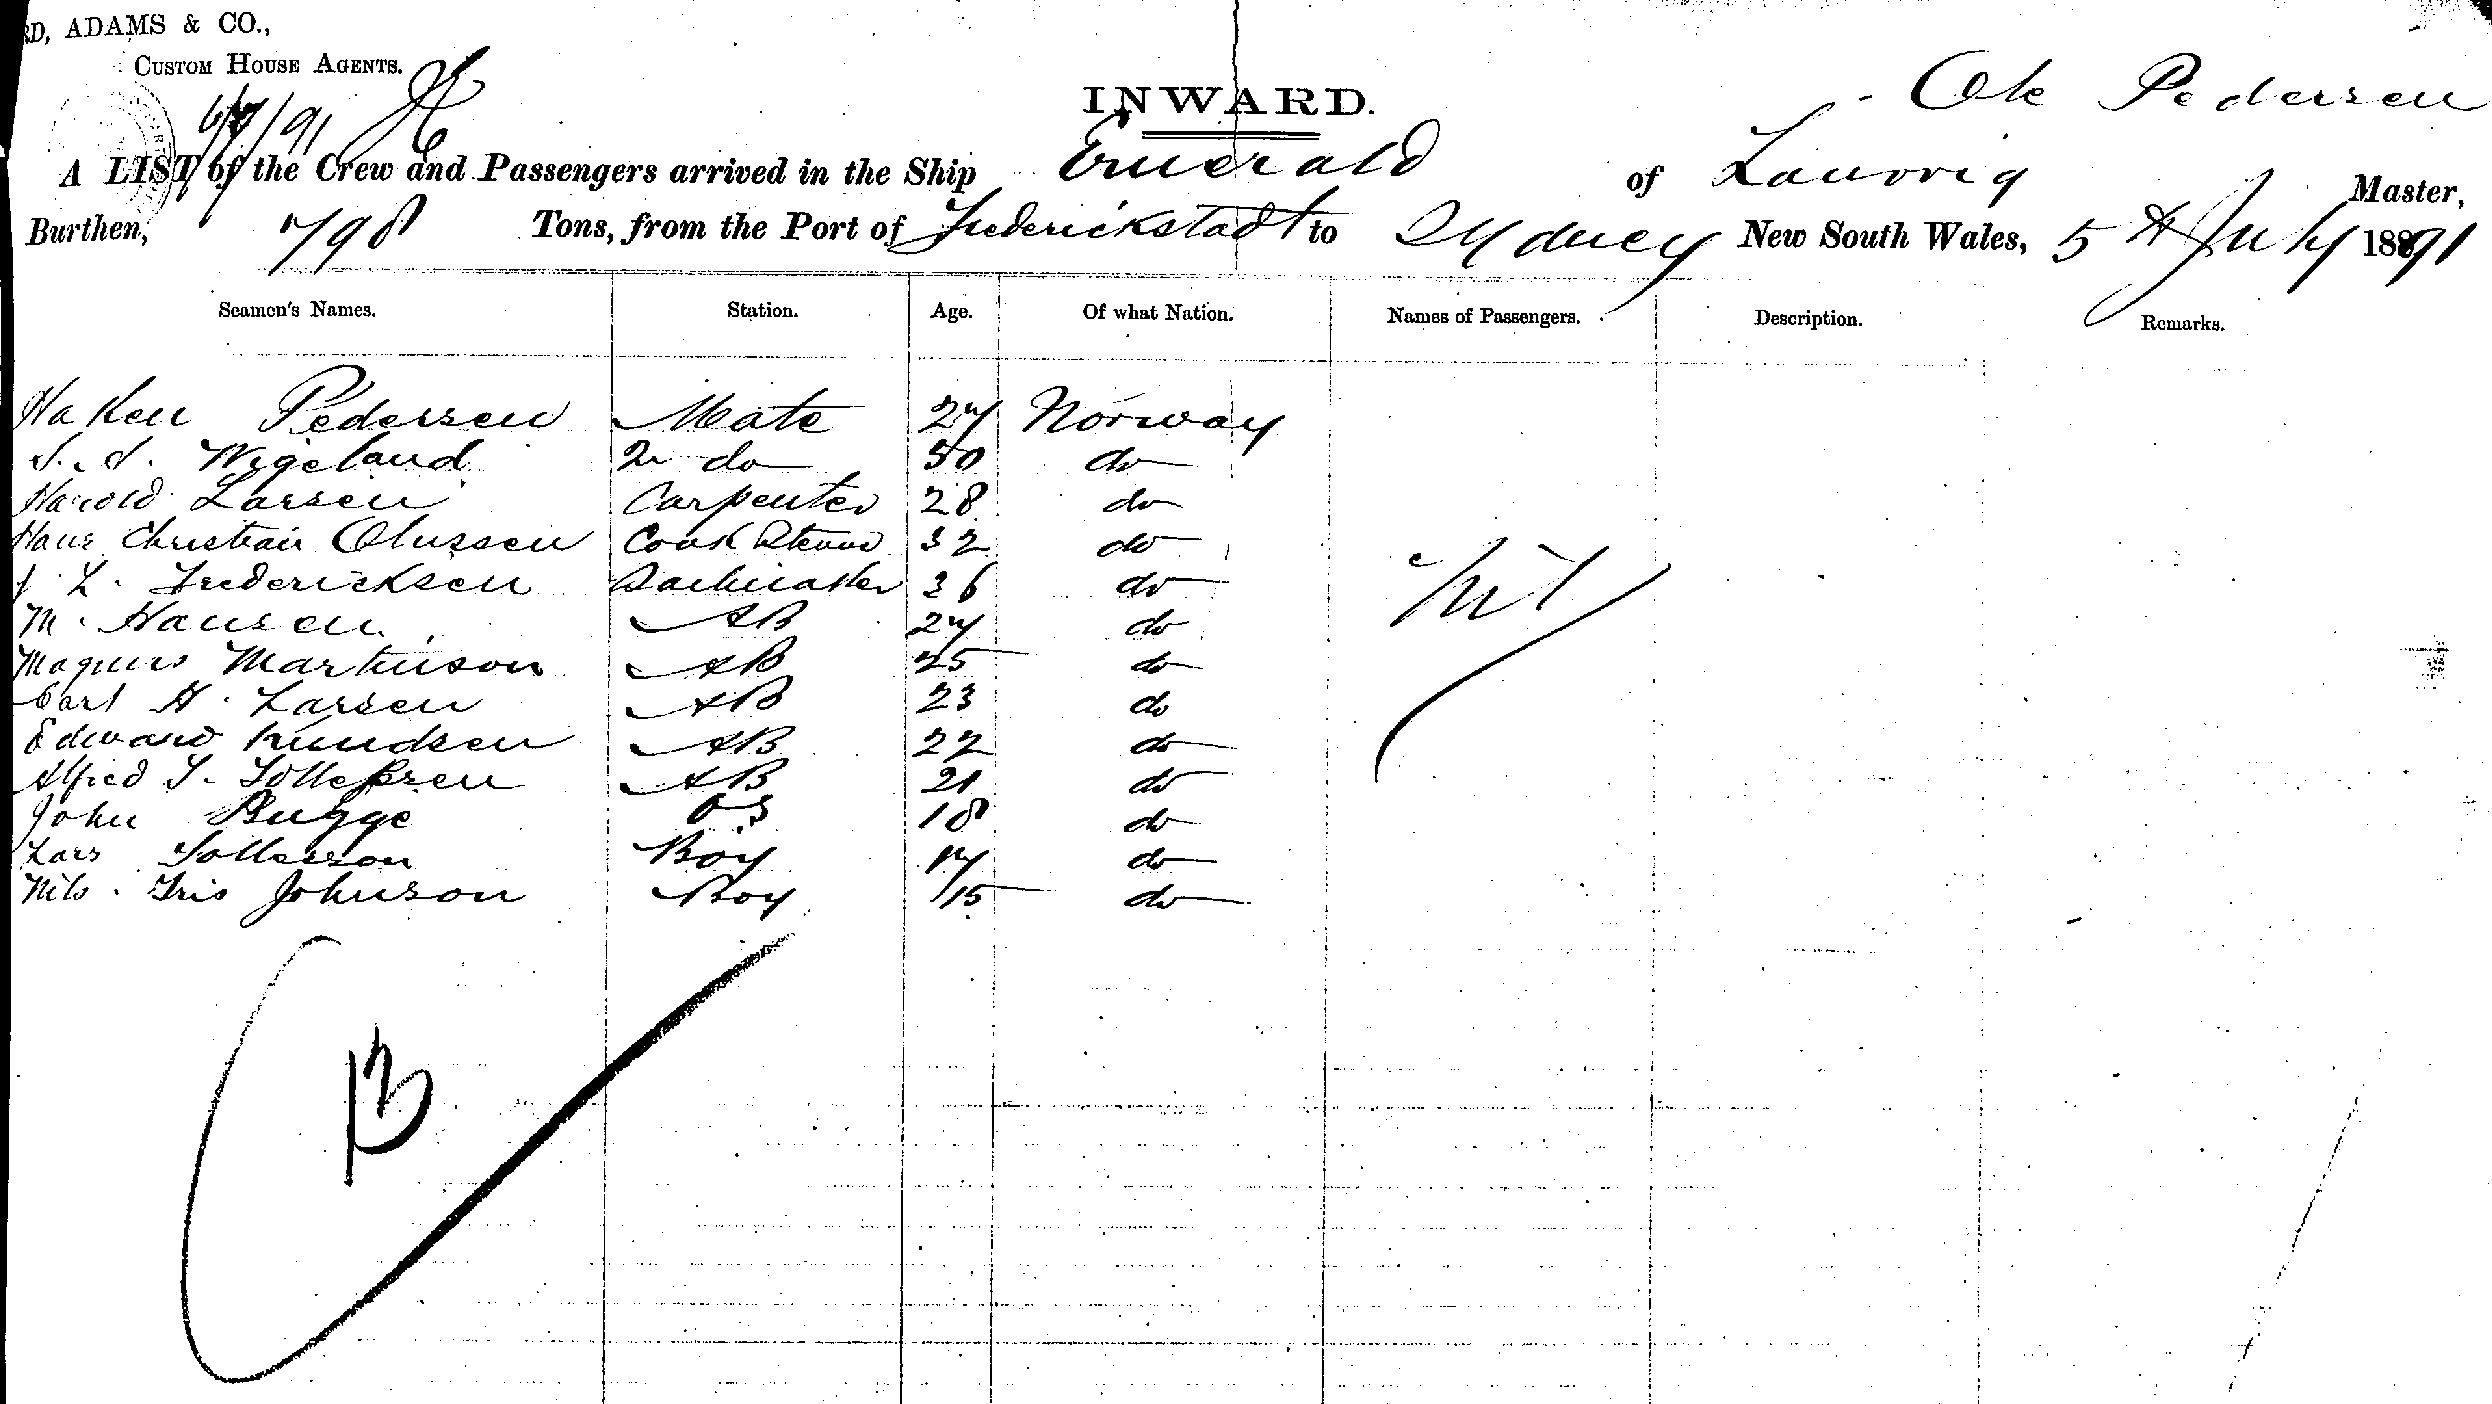 RD, ADAMS & CO.,
CUSTOM HOUSE AGENTS.
6/7/91
INWARD.
Ole Pedersen
A LIST of the Crew and Passengers arrived in the Ship Emerald of Laurvig Master,
Burthen, 798 Tons, from the Port of Frederickstadt to Sydney New South Wales, 5th July 1891
Seamen's Names. Station. Age. Of what Nation. Names of Passengers. Description. Remarks.
Haken Pedersen Mate 27 Norway
Wigeland 2 do 50 do
Harold Larsen Carpenter 28 do
Hans Christian Olussen Cook Steward 32 do
L. Fredericksen Sailmaker 36 do
M. Hansen AB 27 do
Magnus Martinson AB 25 do
Carl H. Larsen AB 23 do
Edward Knudsen AB 22 do
Alfred T. Tollefsen AB 21 do
John Bugge OS 18 do
Lars Tollesson Boy 17 do
Nils Johnson Boy 15 do
Nil
13